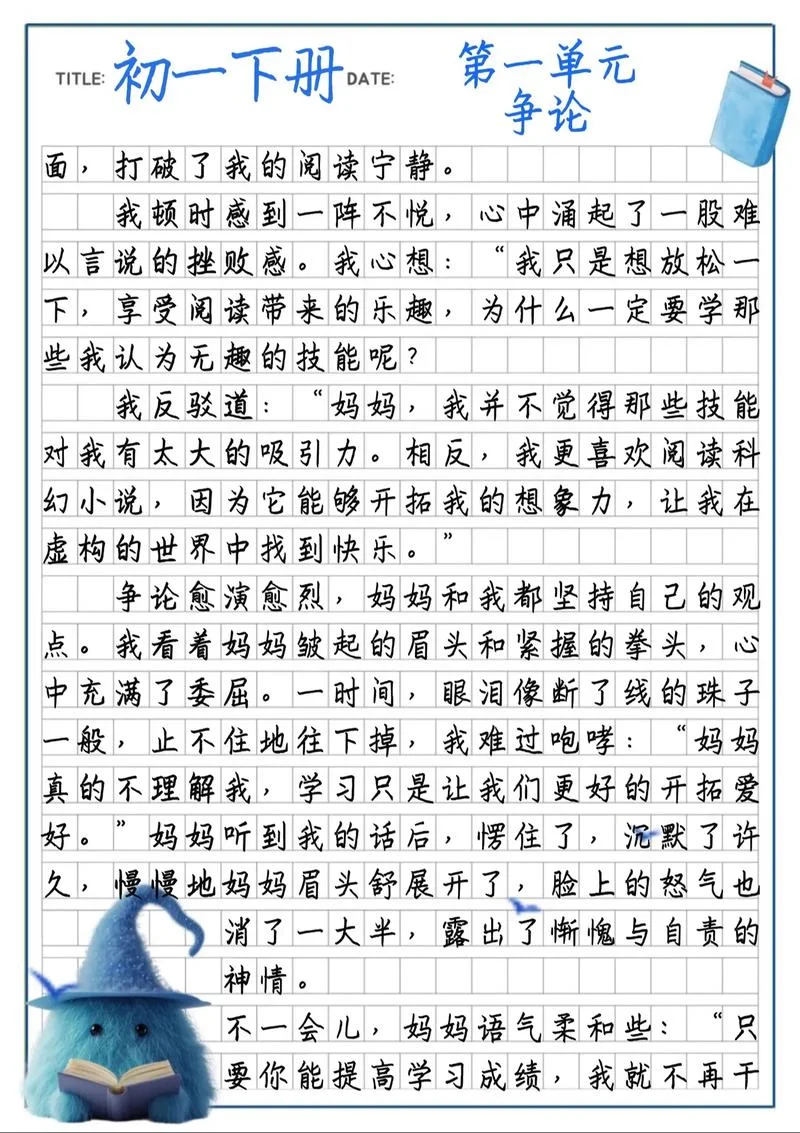 TITLE: 初一下册 DATE: 第一单元
争论
面，打破了我的阅读宁静。
我顿时感到一阵不悦，心中涌起了一股难
以言说的挫败感。我心想：“我只是想放松一
下，享受阅读带来的乐趣，为什么一定要学那
些我认为无趣的技能呢？
我反驳道：“妈妈，我并不觉得那些技能
对我有太大的吸引力。相反，我更喜欢阅读科
幻小说，因为它能够开拓我的想象力，让我在
虚构的世界中找到快乐。”
争论愈演愈烈，妈妈和我都坚持自己的观
点。我看着妈妈皱起的眉头和紧握的拳头，心
中充满了委屈。一时间，眼泪像断了线的珠子
一般，止不住地往下掉，我难过咆哮：“妈妈
真的不理解我，学习只是让我们更好的开拓爱
好。”妈妈听到我的话后，愣住了，沉默了许
久，慢慢地妈妈眉头舒展开了，脸上的怒气也
消了一大半，露出了惭愧与自责的
神情。
不一会儿，妈妈语气柔和些：“只
要你能提高学习成绩，我就不再干